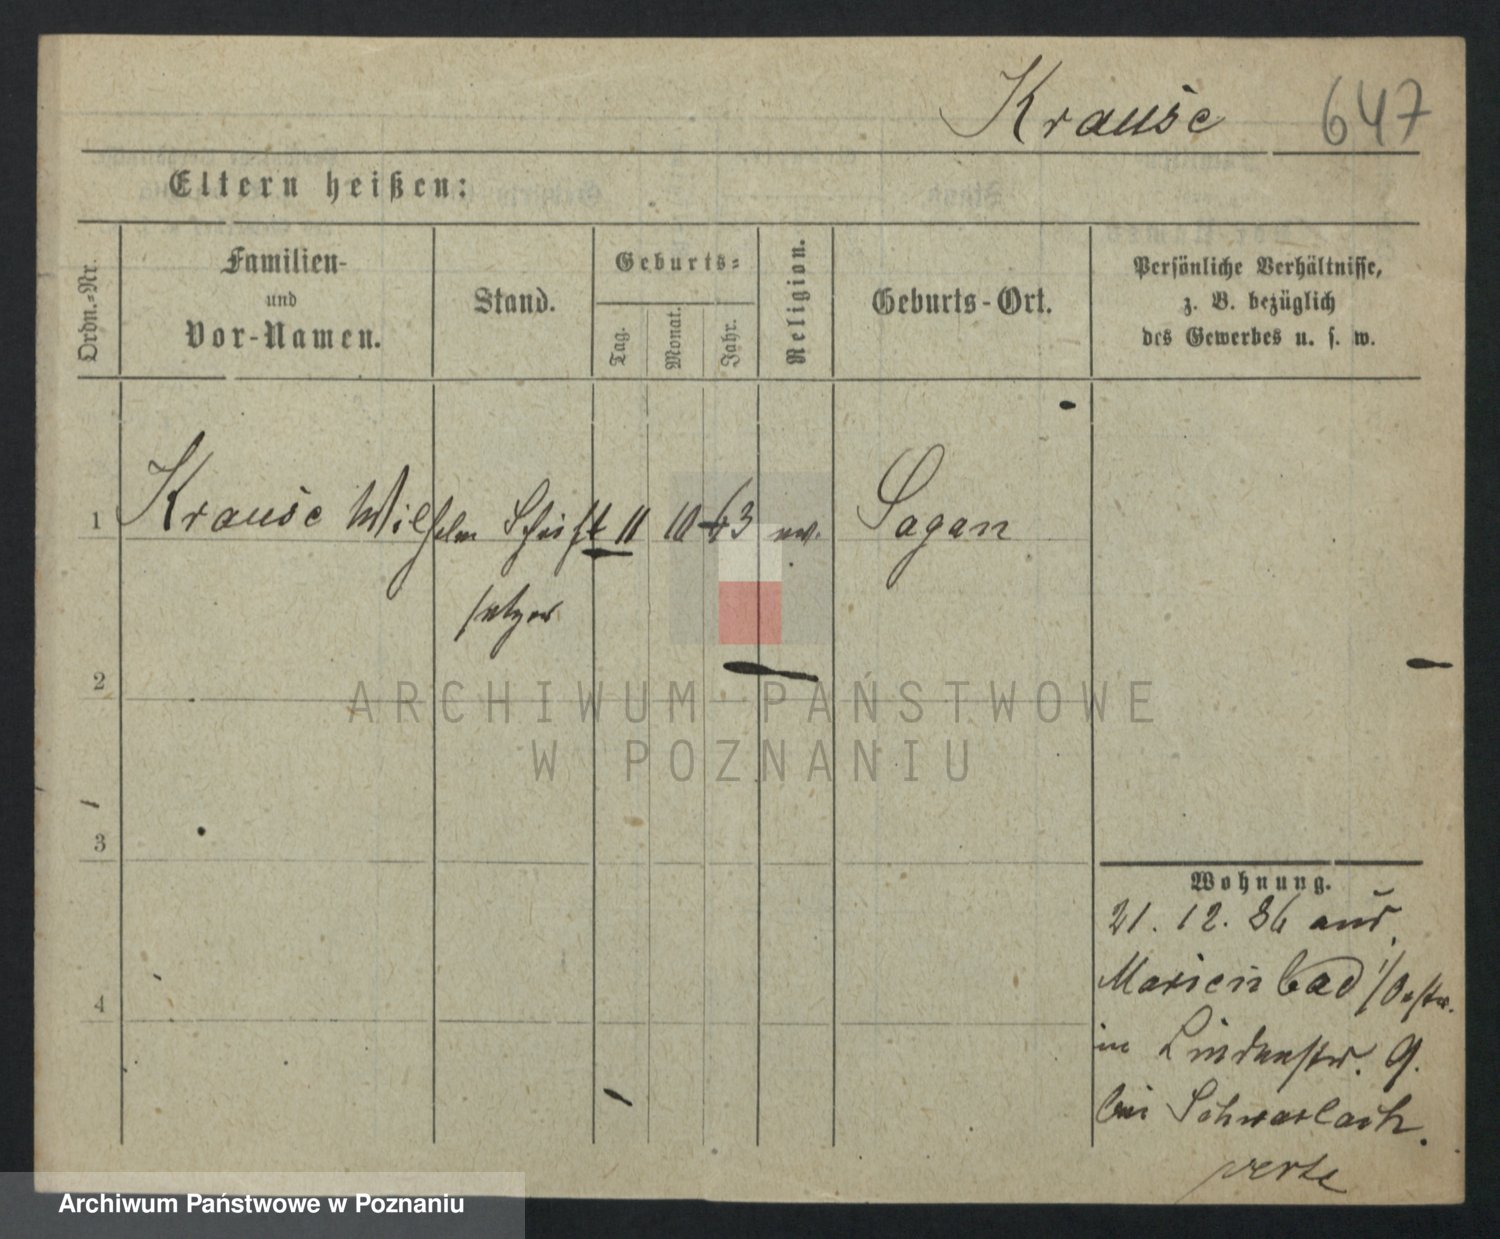 Krause 647
Eltern heißen:
Ordn.=Nr.
Familien-
und
Vor-Namen.
Stand.
Geburts=
Tag.
Monat.
Jahr.
Religion.
Geburts-Ort.
Persönliche Verhältnisse,
z. B. bezüglich
des Gewerbes u. s. w.
1 Krause Wilhelm Schrift 11 10 63 ev. Sagan
setzer
2
3
4
Wohnung.
21. 12. 86 aus
Marienbad i/Oestr.
in Lindenstr. 9.
bei
verte
ARCHIWUM PAŃSTWOWE
W POZNANIU
Archiwum Państwowe w Poznaniu